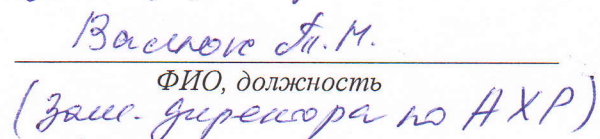 Валюк Т.Н.
ФИО, должность
(Зам. директора по АХР)